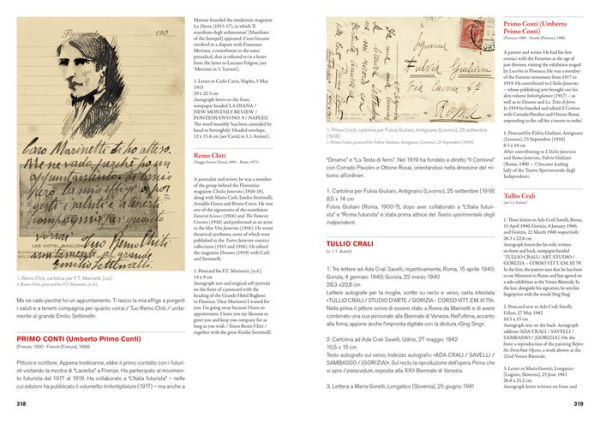 190
Caro Marinetti ti ho atteso.
Me ne vado perché ho un
appuntamento. Ti lascio
la mia effige a porgerti
i saluti e a tenerti
compagnia per quanto
vorrai
Tuo Remo Chiti
Settimelli
1. Remo Chiti, cartolina per F.T. Marinetti, [s.d.]
1. Remo Chiti, postcard for F.T. Marinetti, [n.d.]
Me ne vado perché ho un appuntamento. Ti lascio la mia effige a porgerti
i saluti e a tenerti compagnia per quanto vorrai / Tuo Remo Chiti / unita-
mente al grande Emilio Settimelli».
PRIMO CONTI (Umberto Primo Conti)
[Firenze, 1900 - Fiesole (Firenze), 1988]
Pittore e scrittore. Appena tredicenne, ebbe il primo contatto con i futuri-
sti visitando la mostra di "Lacerba" a Firenze. Ha partecipato al movimen-
to futurista dal 1917 al 1919. Ha collaborato a "L'Italia futurista" – nelle
cui edizioni ha pubblicato il volumetto Imbottigliature (1917) – ma anche a
318
Meriano founded the modernist magazine
La Diana (1915-17), in which 'Il
manifesto degli
became
involved in a dispute with Francesco
Meriano, a contributor to the same
periodical, that is referred to in a letter
from the latter to Luciano Folgore (see
Meriano, in 3. 'Letters').
1. Letter to Carlo Carrà, Naples, 5 May
1915
29 x 22.5 cm
Autograph letter on the front,
newspaper headed 'LA DIANA /
NEW MONTHLY REVIEW /
PONTENUOVO NO. 8 / NAPLES'.
The word 'monthly' has been amended by
hand to 'fortnightly'. Headed envelope,
12 x 15.8 cm (see Carrà, in 1.1. 'Letters').
Remo Chiti
A journalist and writer, he was a member
of the group behind the Florentine
magazine L'Italia futurista (1916-18),
along with Mario Carli, Emilio Settimelli,
Arnaldo Ginna and Bruno Corra. He was
one of the signatories of the manifestos
Futurist Science (1916) and The Futurist
Cinema (1916) and performed as an actor
in the film Vita futurista (1916). He wrote
theatrical syntheses, some of which were
published in the Teatro futurista sintetico
collections (1915 and 1916). He edited
the magazine Dinamo (1919) with Carli
and Settimelli.
1. Postcard for F.T. Marinetti, [n.d.]
14 x 9 cm
Autograph text and original self-portrait
on the front of a postcard with the
heading of the Grande Hôtel Baglioni
in Florence. 'Dear Marinetti. I waited for
you. I'm going away because I have an
appointment. I leave you my likeness to
greet you and keep you company for as
long as you wish / Yours Remo Chiti /
together with the great Emilio Settimelli.'
Signorina
Fulvia Giuliani
Roma
1. Primo Conti, cartolina per Fulvia Giuliani, Antignano (Livorno), 25 settembre
[1918]
1. Primo Conti, postcard for Fulvia Giuliani, Antignano (Livorno), 25 September [1918]
"Dinamo" e "La Testa di ferro". Nel 1919 ha fondato e diretto "Il Centone"
con Corrado Pavolini e Ottone Rosai, orientandosi nella direzione del ritor-
no all'ordine.
1. Cartolina per Fulvia Giuliani, Antignano (Livorno), 25 settembre [1918]
8,5 x 14 cm
Fulvia Giuliani (Roma, 1900-?), dopo aver collaborato a "L'Italia futuri-
sta" e "Roma futurista" è stata prima attrice del Teatro sperimentale degli
indipendenti.
TULLIO CRALI
(v. 1.1. Autori)
1. Tre lettere ad Ada Crali Savelli, rispettivamente, Roma, 15 aprile 1940;
Gorizia, 4 gennaio 1940; Gorizia, 22 marzo 1940
28,3 x22,8 cm
Lettere autografe per la moglie, scritte su recto e verso, carta intestata
«TULLIO CRALI / STUDIO D'ARTE / GORIZIA - CORSO VITT. EM. III 79».
Nella prima il pittore scrive di essere stato a Roma da Marinetti e di avere
combinato una sua personale alla Biennale di Venezia. Nell'ultima, accanto
alla firma, appone anche l'impronta digitale con la dicitura «Sing Sing».
2. Cartolina ad Ada Crali Savelli, Udine, 27 maggio 1942
10,5 x 15 cm
Testo autografo sul verso. Indirizzo autografo: «ADA CRALI / SAVELLI /
SAMBASSO / (GORIZIA)». Sul recto la riproduzione dell'opera Prima che
si apra il paracadute, esposta alla XXII Biennale di Venezia.
3. Lettera a Maria Goretti, Longatico [Slovenia], 25 giugno 1941
Primo Conti (Umberto
Primo Conti)
[Florence, 1900 - Fiesole (Florence), 1988]
A painter and writer. He had his first
contact with the Futurists at the age of
just thirteen, visiting the exhibition staged
by Lacerba in Florence. He was a member
of the Futurist movement from 1917 to
1919. He contributed to L'Italia futurista
– whose publishing arm brought out his
slim volume Imbottigliature (1917) – as
well as to Dinamo and La Testa di ferro.
In 1919 he founded and edited Il Centone
with Corrado Pavolini and Ottone Rosai,
responding to the call for a return to order.
1. Postcard for Fulvia Giuliani, Antignano
(Livorno), 25 September [1918]
8.5 x 14 cm
After contributing to L'Italia futurista
and Roma futurista, Fulvia Giuliani
(Rome, 1900 - ?) became leading
lady of the Teatro Sperimentale degli
Indipendenti.
Tullio Crali
(see 1.1. Autori)
1. Three letters to Ada Crali Savelli, Rome,
15 April 1940; Gorizia, 4 January 1940;
and Gorizia, 22 March 1940 respectively
28.3 x 22.8 cm
Autograph letters for his wife, written
on front and back, notepaper headed
'TULLIO CRALI / ART STUDIO /
GORIZIA - CORSO VITT. EM. III 79'.
In the first, the painter says that he has been
to see Marinetti in Rome and has agreed on
a solo exhibition at the Venice Biennale. In
the last, alongside his signature, he sets his
fingerprint with the words 'Sing Sing'.
2. Postcard sent to Ada Crali Savelli,
Udine, 27 May 1942
10.5 x 15 cm
Autograph text on the back. Autograph
address: 'ADA CRALI / SAVELLI /
SAMBASSO / (GORIZIA)'. On the
front a reproduction of the painting Before
the Parachute Opens, a work shown at the
22nd Venice Biennale.
3. Letter to Maria Goretti, Longatico
[Logatec, Slovenia], 25 June 1941
26.8 x 21.2 cm
Autograph letter written on front and
319